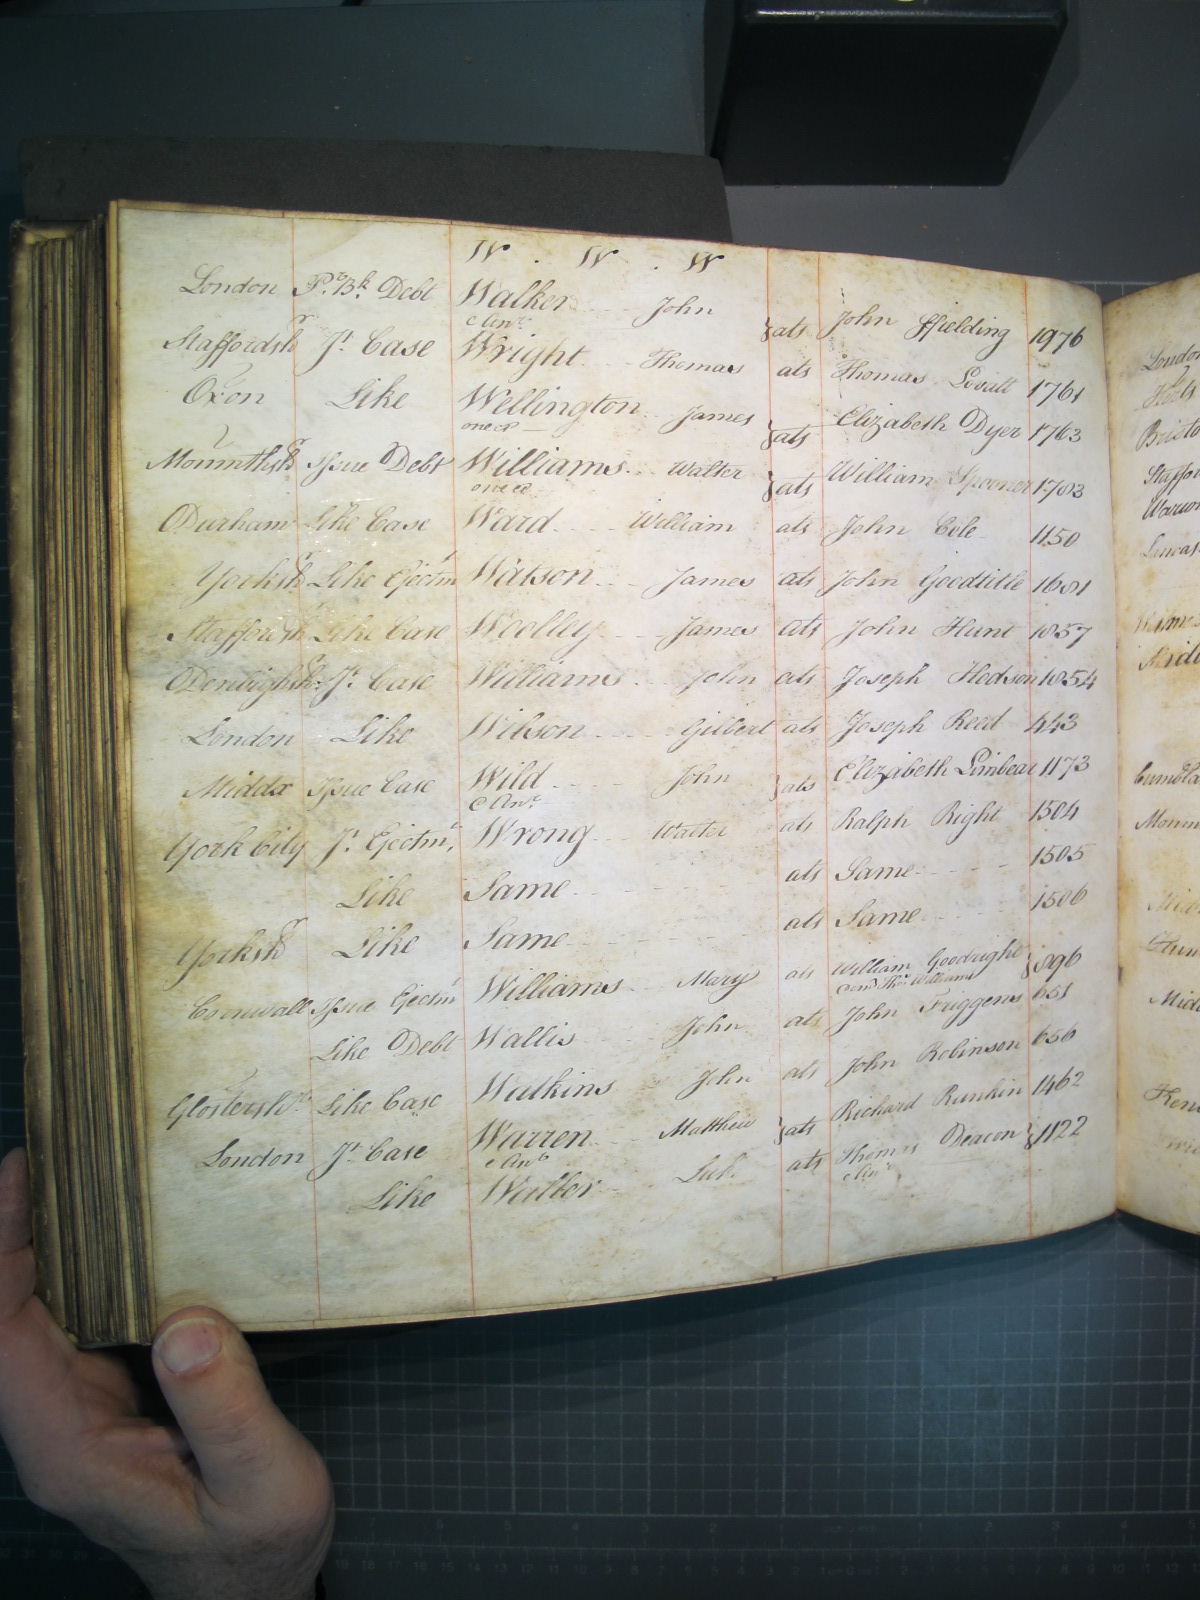 W . W . W
London P.r B.k Debt Walker John } ats John ffielding 1976
e An.r
Staffordsh.r J.t Case Wright Thomas ats Thomas Lovatt 1761
Oxon Like Wellington James } ats Elizabeth Dyer 1763
one er
Mounthsh.r Issue Debt Williams Walter } ats William Spooner 1783
one er
Durham Like Case Ward William ats John Cole 1150
Yorksh.r Like Ejectm.t Watson James ats John Goodtitle 1681
Staffordsh.r Like Case Woolley James ats John Hunt 1857
Denbighsh.r J.t Case Williams John ats Joseph Hodson 1854
London Like Wilson Gilbert ats Joseph Reed 443
Middx Issue Case Wild John } ats Elizabeth Limbear 1173
e An.r
York City J.t Ejectm.t Wrong Walter ats Ralph Right 1504
Like Same ats Same 1505
Yorksh.r Like Same ats Same 1506
Cornwall Issue Ejectm.t Williams Mary ats William Goodright } 896
Tho.s Williams
Like Debt Wallis John ats John Friggens 651
Glostersh.r Like Case Watkins John ats John Robinson 656
London J.t Case Warren Matthew } ats Richard Runkin 1462
e An.r
Like Walter ats Thomas Deacon } 1122
e An.r
London
Bristo
Staffor
Warwi
Lancas
Cumbla